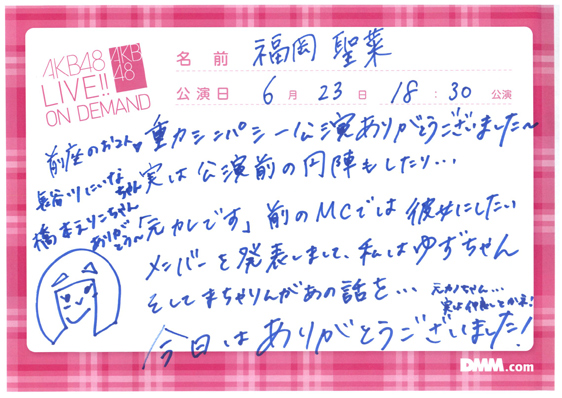 AKB48
LIVE!!
ON DEMAND
AKB
48
名前 福岡 聖菜
公演日 6月 23日 18:30 公演
前座のお2人
長谷川
ちゃん
橋本えりこちゃん
ありがとう〜
重力シンパシー公演ありがとうございました〜
実は公演前の円陣もしたり…
「元カレです」前のMCでは彼女にしたい
メンバーを発表しまして、私はゆずちゃん
そしてまちゃりんがあの話を…
元カノちゃん…
実は仲良し
今日はありがとうございました!
DMM.com